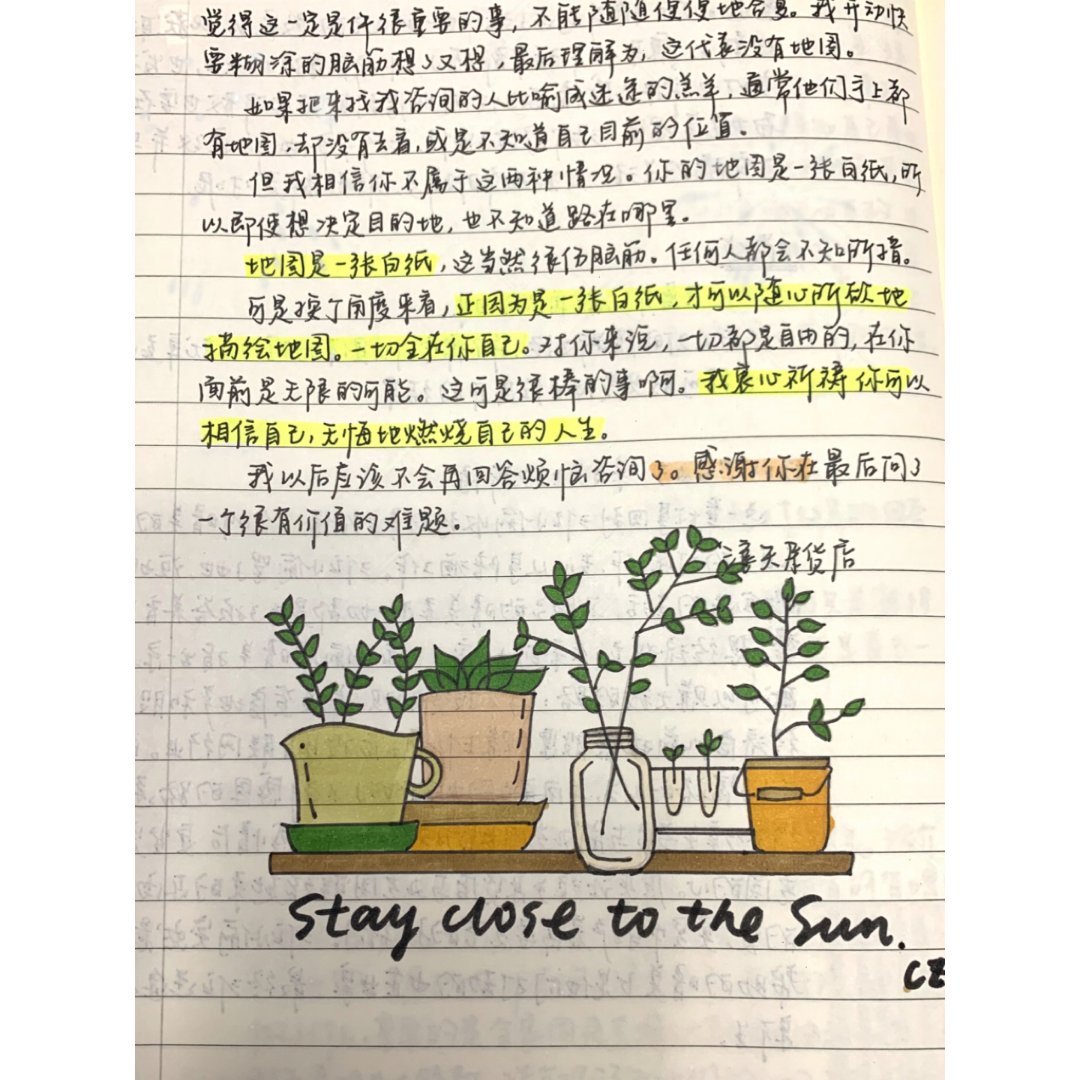 觉得这一定是件很重要的事，不能随随便便地答复。我开动快
要糊涂的脑筋想了又想，最后理解为，这代表没有地图。
如果把来找我咨询的人比喻成迷途的羔羊，通常他们手上都
有地图，却没有去看，或是不知道自己目前的位置。
但我相信你不属于这两种情况。你的地图是一张白纸，所
以即使想决定目的地，也不知道路在哪里。
地图是一张白纸，这当然很伤脑筋。任何人都会不知所措。
可是换个角度来看，正因为是一张白纸，才可以随心所欲地
描绘地图。一切全在你自己。对你来说，一切都是自由的，在你
面前是无限的可能。这可是很棒的事啊。我衷心祈祷你可以
相信自己，无悔地燃烧自己的人生。
我以后应该不会再回答烦恼咨询了。感谢你在最后问了
一个很有价值的难题。
浪矢杂货店
Stay close to the Sun.
CZ